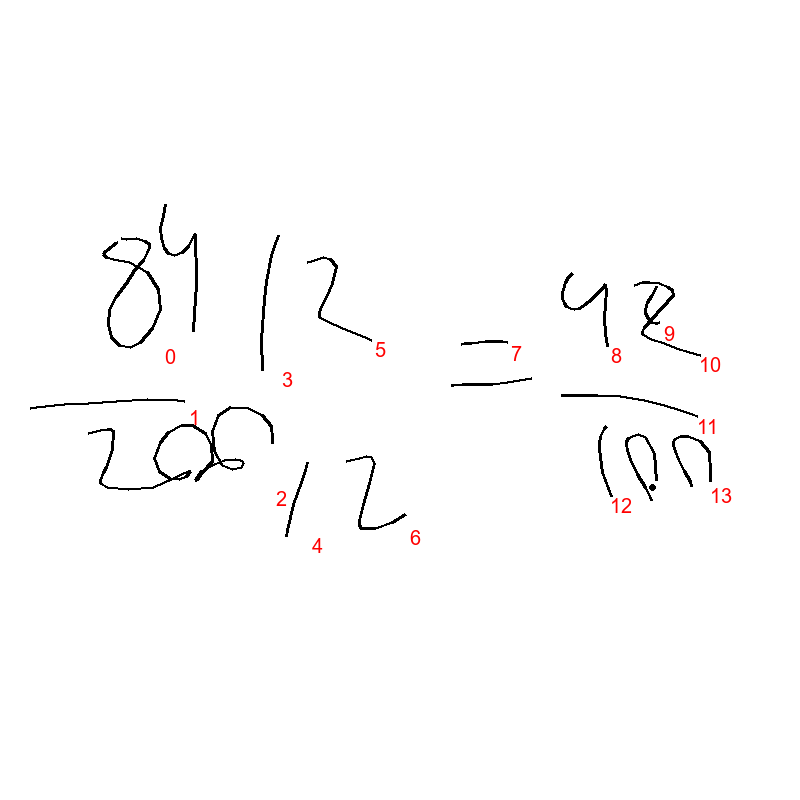 84/2 = 42
200/2 100
0
1
2
3
4
5
6
7
8
9
10
11
12
13